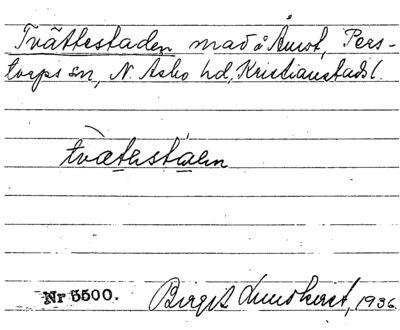 Tvättestaden mad å Åmot, Pers-
torps sn, N. Asbo hd, Kristianstads l.
tvætestaden
Nr 5500. Birgit Lundqvist, 1936.